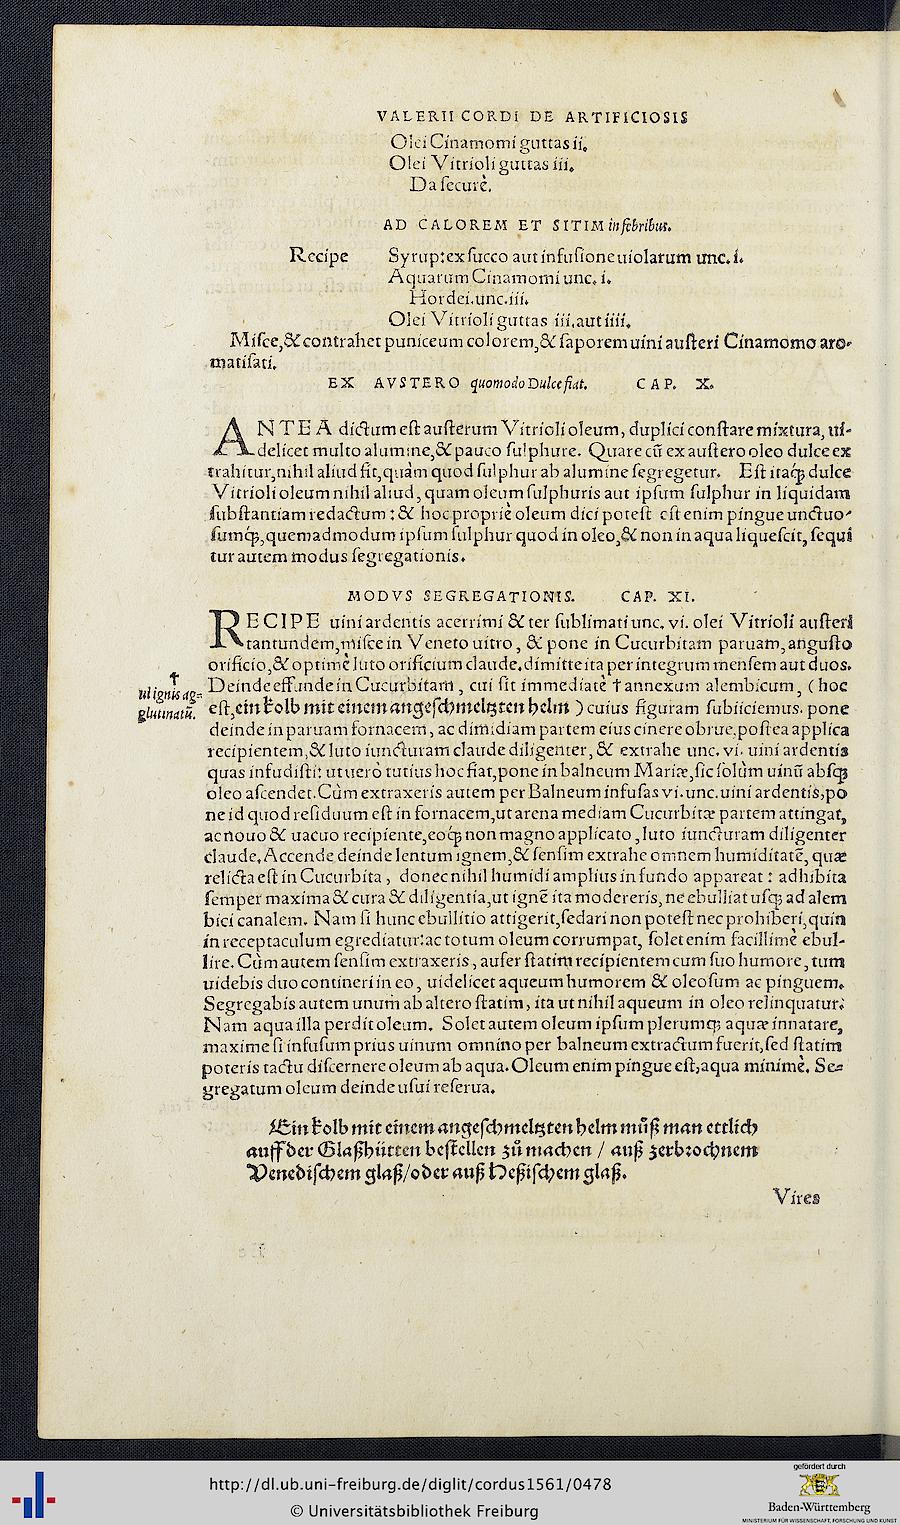 VALERII CORDI DE ARTIFICIOSIS
Olei Cinamomi guttas ii.
Olei Vitrioli guttas iii.
Da securè.
AD CALOREM ET SITIM in febribus.
Recipe Syrup: ex succo aut infusione uiolarum unc. i.
Aquarum Cinamomi unc. i.
Hordei. unc. iii.
Olei Vitrioli guttas iii. aut iiii.
Misce, & contrahet puniceum colorem, & saporem uini austeri Cinamomo aro-
matisati.
EX AVSTERO quomodo Dulce fiat. CAP. X.
ANTEA dictum est austerum Vitrioli oleum, duplici constare mixtura, ui-
delicet multo alumine, & pauco sulphure. Quare cũ ex austero oleo dulce ex
trahitur, nihil aliud fit, quàm quod sulphur ab alumine segregetur. Est itaq; dulce
Vitrioli oleum nihil aliud, quam oleum sulphuris aut ipsum sulphur in liquidam
substantiam redactum: & hoc propriè oleum dici potest est enim pingue unctuo-
sumq;, quemadmodum ipsum sulphur quod in oleo, & non in aqua liquescit, sequi
tur autem modus segregationis.
MODVS SEGREGATIONIS. CAP. XI.
RECIPE uini ardentis acerrimi & ter sublimati unc. vi. olei Vitrioli austeri
tantundem, misce in Veneto uitro, & pone in Cucurbitam paruam, angusto
orificio, & optimè luto orificium claude, dimitte ita per integrum mensem aut duos.
Deinde effunde in Cucurbitam, cui sit immediatè † annexum alembicum, (hoc
† ut ignis ag-
glutinatũ.
est, ein kolb mit einem angeschmeltzten helm) cuius figuram subiiciemus. pone
deinde in paruam fornacem, ac dimidiam partem eius cinere obrue, postea applica
recipientem, & luto iuncturam claude diligenter, & extrahe unc. vi. uini ardentis
quas infudisti: ut uerò tutius hoc fiat, pone in balneum Mariæ, sic solùm uinũ absq;
oleo ascendet. Cùm extraxeris autem per Balneum infusas vi. unc. uini ardentis, po
ne id quod residuum est in fornacem, ut arena mediam Cucurbitæ partem attingat,
ac nouo & uacuo recipiente, eoq; non magno applicato, luto iuncturam diligenter
claude. Accende deinde lentum ignem, & sensim extrahe omnem humiditatẽ, quæ
relicta est in Cucurbita, donec nihil humidi amplius in fundo appareat: adhibita
semper maxima & cura & diligentia, ut ignẽ ita modereris, ne ebulliat usq; ad alem
bici canalem. Nam si hunc ebullitio attigerit, sedari non potest nec prohiberi, quin
in receptaculum egrediatur: ac totum oleum corrumpat, solet enim facillimè ebul-
lire. Cùm autem sensim extraxeris, aufer statim recipientem cum suo humore, tum
uidebis duo contineri in eo, uidelicet aqueum humorem & oleosum ac pinguem.
Segregabis autem unum ab altero statim, ita ut nihil aqueum in oleo relinquatur:
Nam aqua illa perdit oleum. Solet autem oleum ipsum plerumq; aquæ innatare,
maxime si infusum prius uinum omnino per balneum extractum fuerit, sed statim
poteris tactu discernere oleum ab aqua. Oleum enim pingue est, aqua minimè. Se-
gregatum oleum deinde usui reserua.
Ein kolb mit einem angeschmeltzten helm můß man ettlich
auff der Glaßhütten bestellen zů machen / auß zerbrochnem
Venedischem glaß/oder auß Heßischem glaß.
Vires
http://dl.ub.uni-freiburg.de/diglit/cordus1561/0478
© Universitätsbibliothek Freiburg
gefördert durch
Baden-Württemberg
MINISTERIUM FÜR WISSENSCHAFT, FORSCHUNG UND KUNST